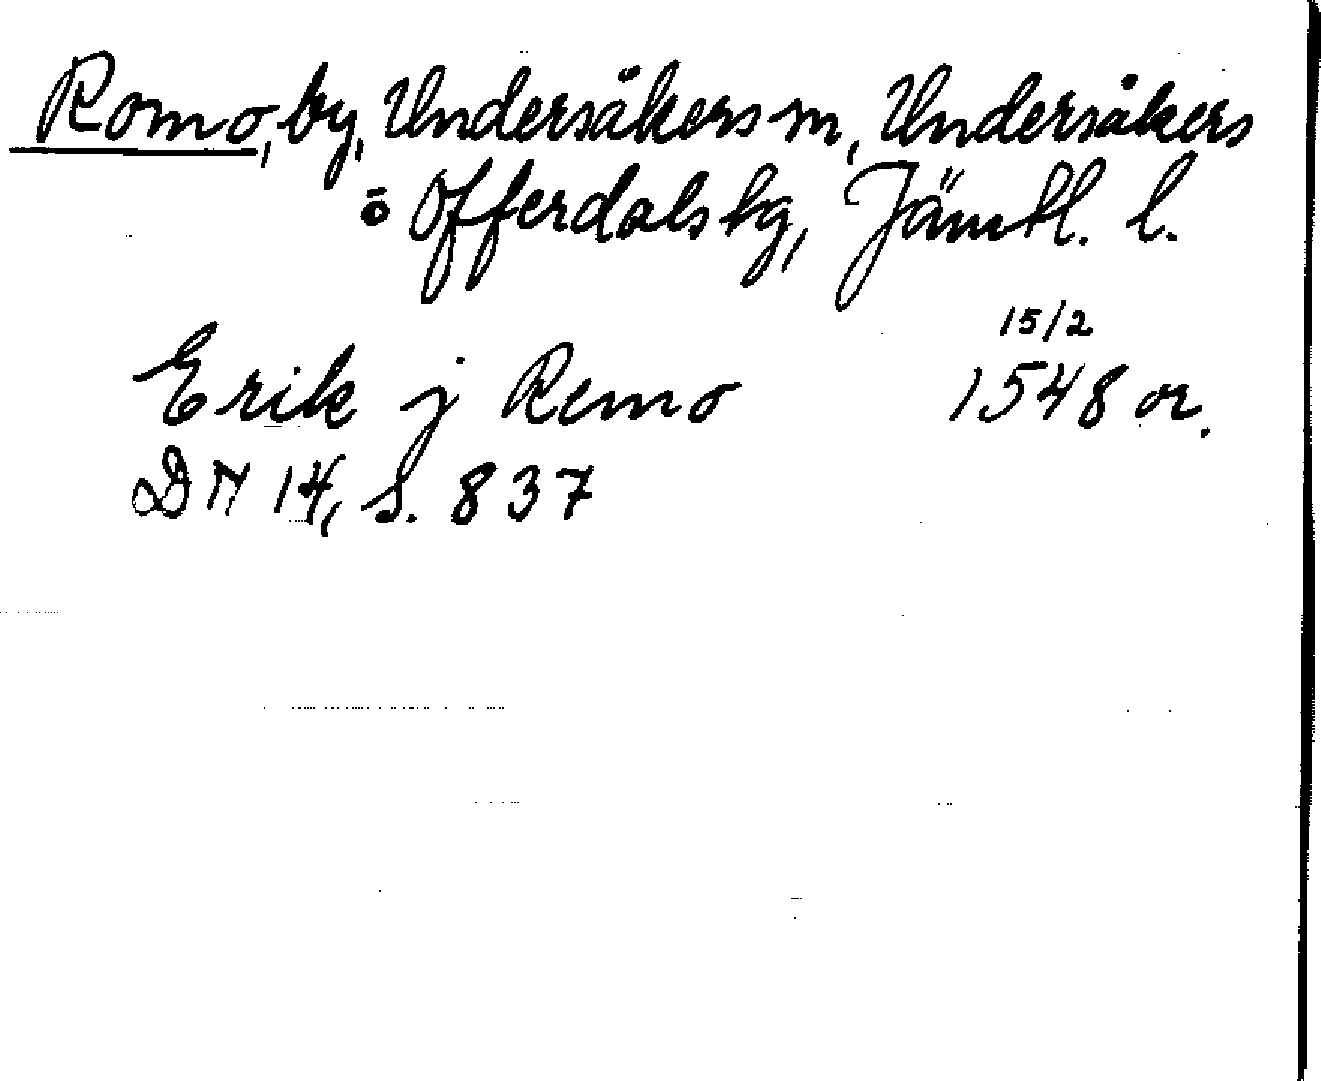 Romo, by, Undersåkers sn, Undersåkers
o Offerdals tg, Jämtl. l.
15/2
Erik j Remo 1548 or.
DN 14, s. 837